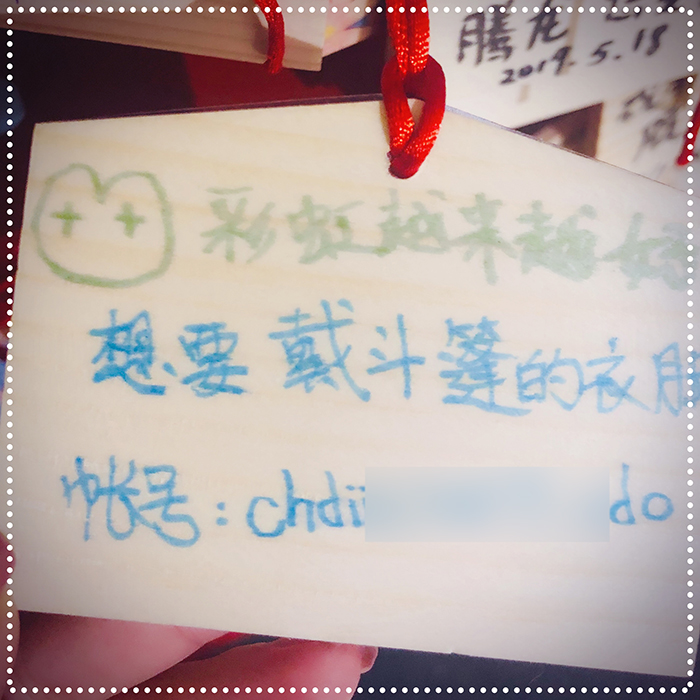 腾龙
2019.5.18
彩虹越来越好
想要戴斗篷的衣服
帐号：chdi
do